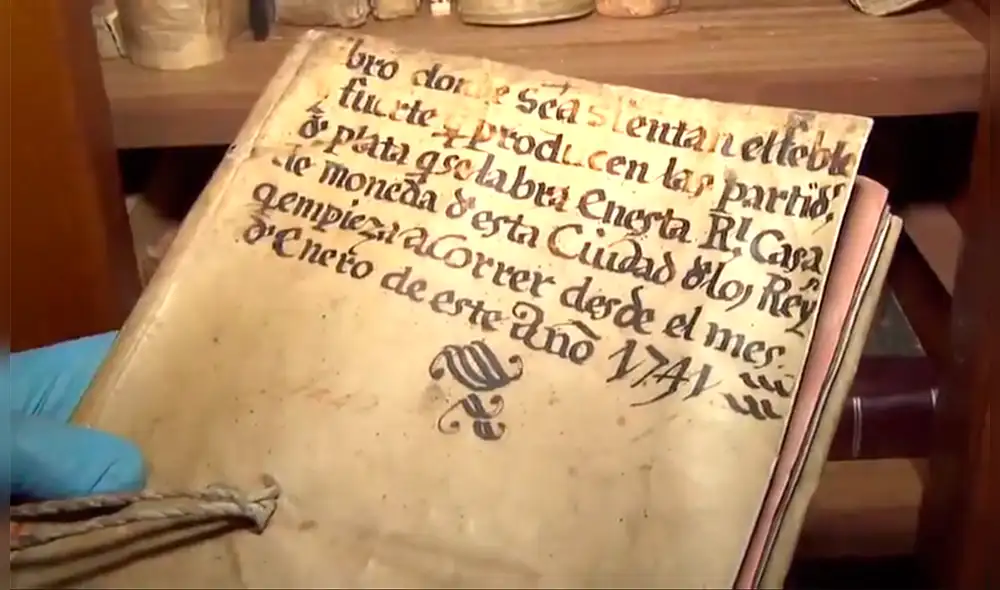 bro donde se asientan el feble
fuerte q producen las partids.
đ plata q se labra Enesta Rl. Casa
de moneda đ esta Ciudad đ los Reys
q empieza a Correr desde el mes
đ Enero de este Año 1741